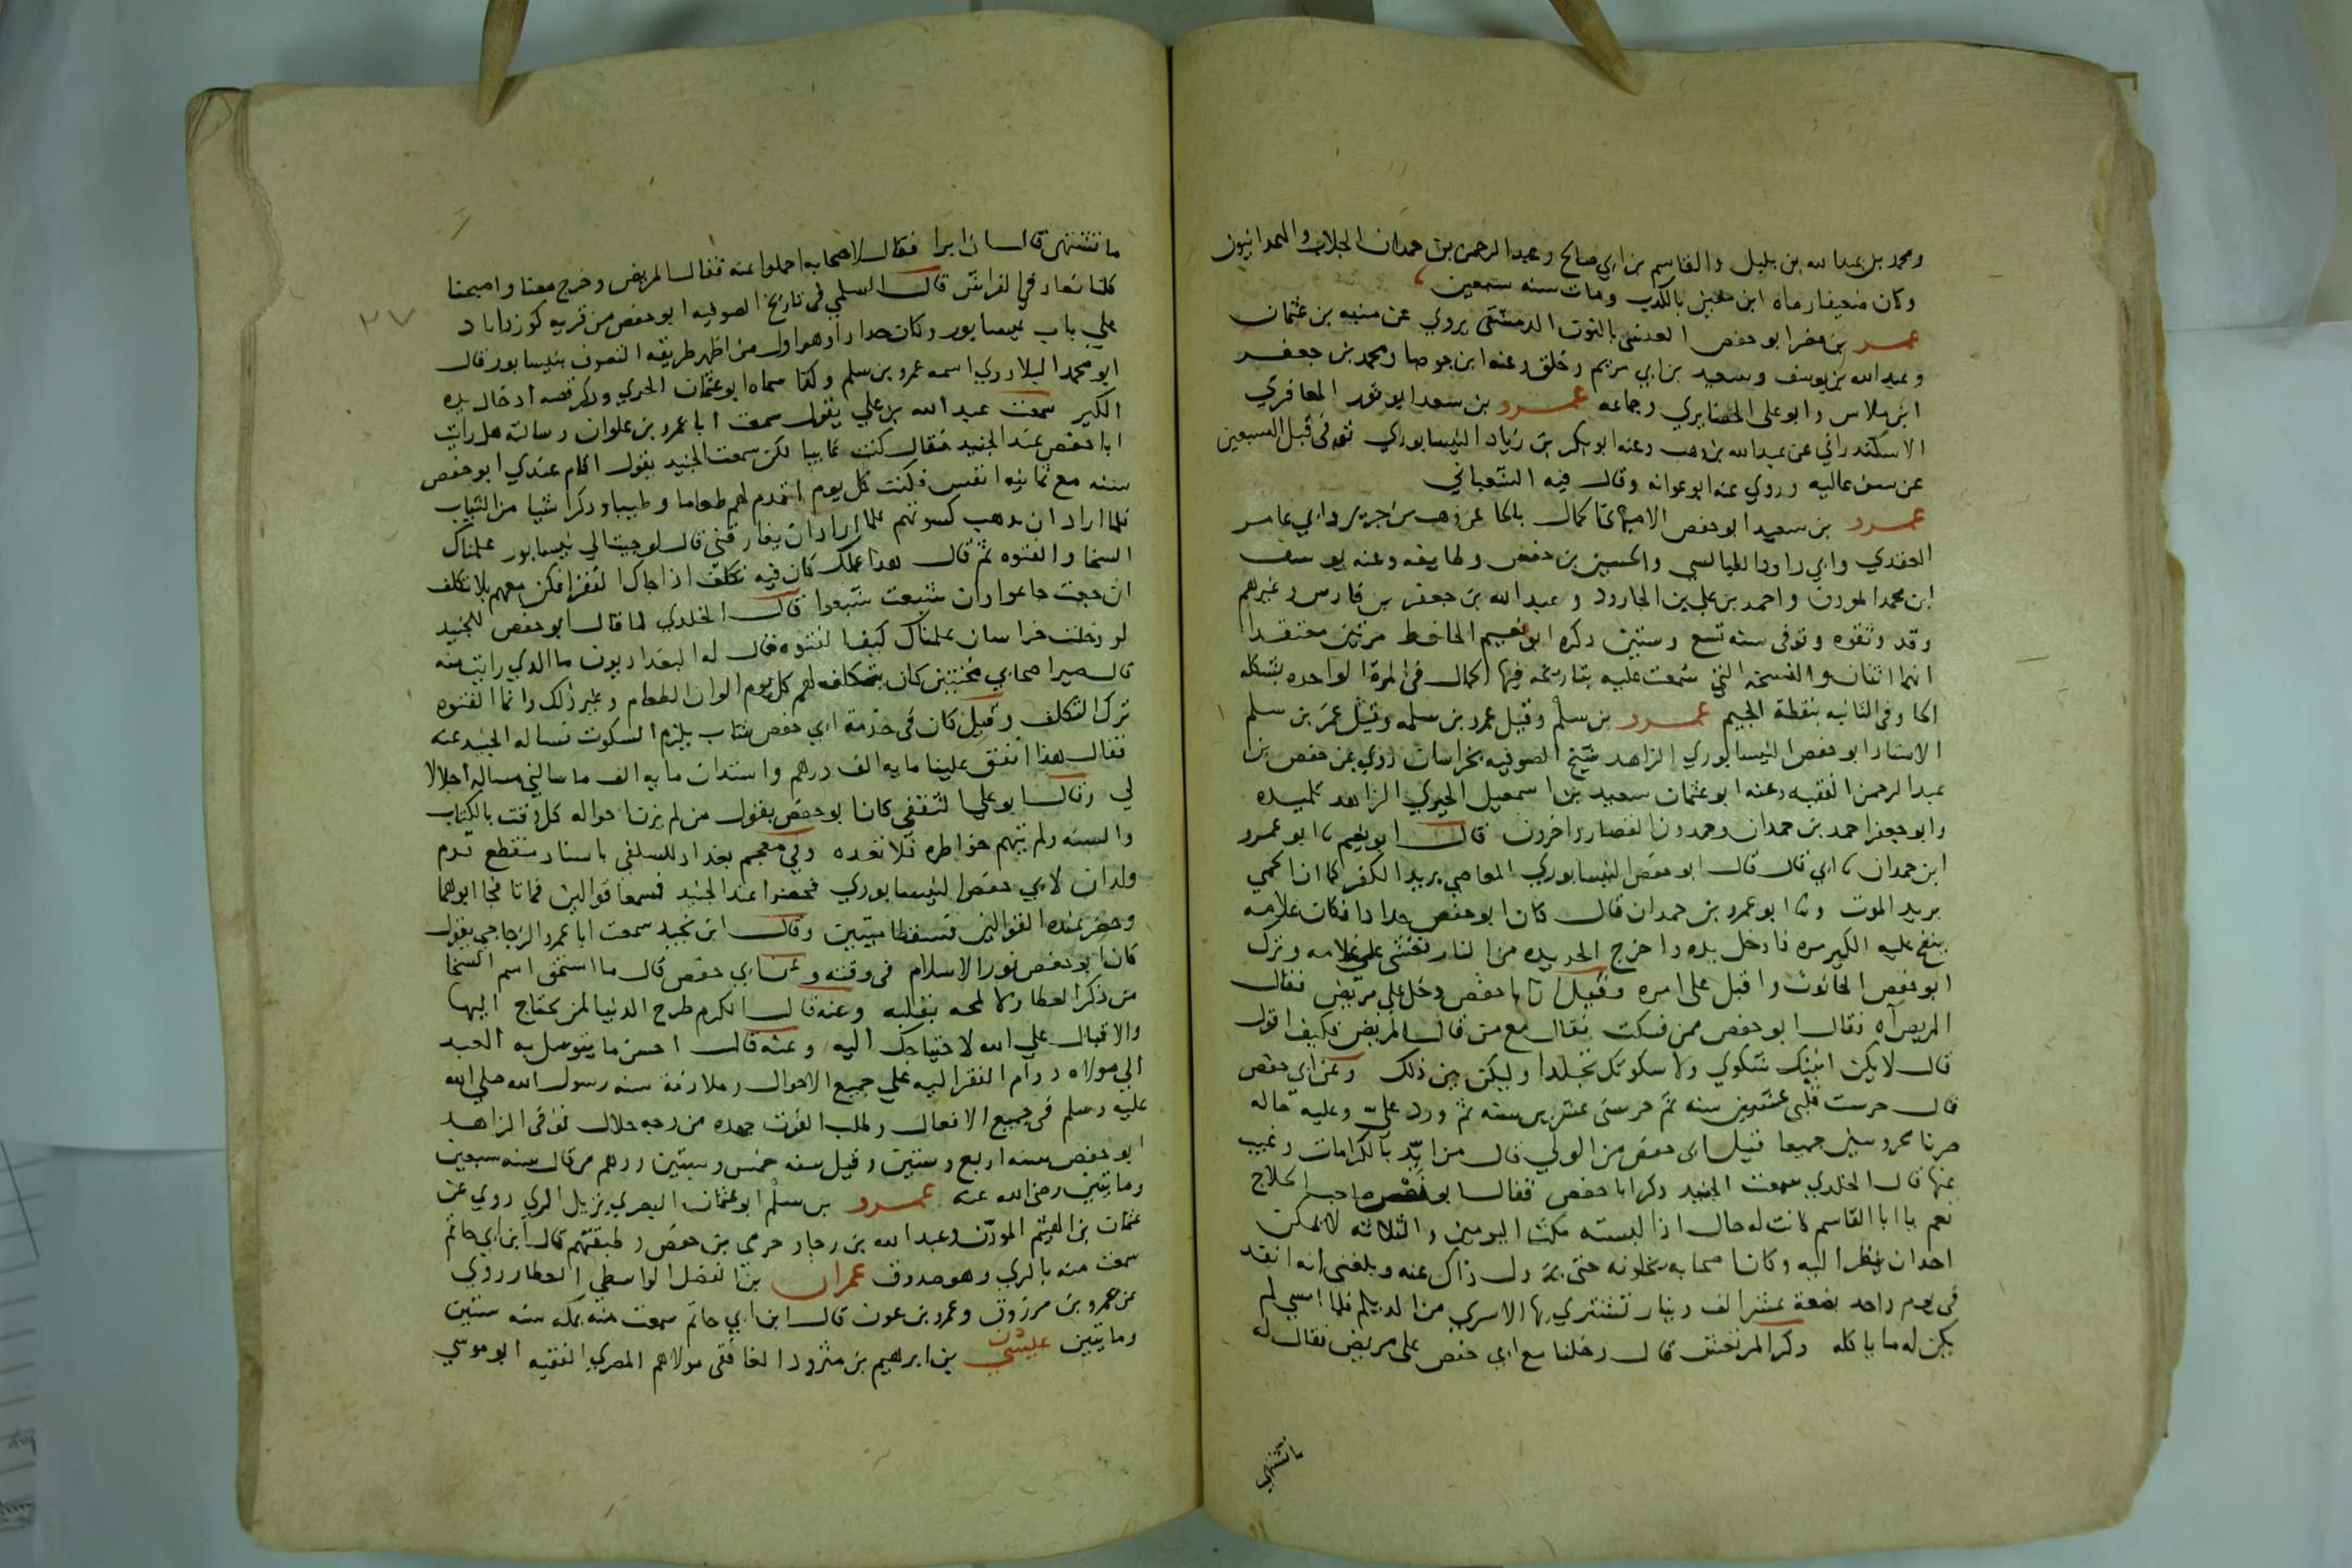 ومحمد بن عبد الله بن بلبل والقاسم بن ابي صالح وعبد الرحمن بن حمدان الجلاب والهمدانيون
وكان ضعيفا رماه ابن بالكذب ومات سنه سبعين
عمر بن مضر ابو حفص العبسي الدمشقي يروي عن منبه بن عثمان
وعبد الله بن يوسف وسعيد بن ابي مريم وخلق وعنه ابن جوصا ومحمد بن جعفر
ابن ملاس وابو علي الحصايري وجماعه عمرو بن سعد ابو ثور المعافري
الاسكندراني عن عبد الله بن وهب وعنه ابو بكر بن زياد النيسابوري توفى قبل السبعين
عن سن عاليه وروي عنه ابو عوانه وقال فيه الشعباني
عمرو بن سعيد ابو حفص كمال بالحا عن وهب بن جرير وابي عامر
العقدي وابي داود الطيالسي والحسين بن حفص وطايفه وعنه يوسف
ابن محمد الموذن واحمد بن علي بن الجارود وعبد الله بن جعفر بن فارس وغيرهم
وقد وثقوه وتوفى سنه تسع وستين ذكره ابو نعيم الحافظ مرتين معتقدا
انهما اثنان والنسخه التي سمعت عليه بتاريخه فيها الحمال فى المرة الواحده بشكله
الحا وفى الثانيه بنقطة الجيم عمرو بن سلم وقيل عمرو بن سلمه وقيل عمر بن سلم
الاستاد ابو حفص النيسابوري الزاهد شيخ الصوفيه بخراسان روي عن حفص بن
عبد الرحمن الفقيه وعنه ابو عثمان سعيد بن اسمعيل الحيري الزاهد تلميده
وابو جعفر احمد بن حمدان وحمدون القصار واخرون قال ابو نعيم ثا ابو عمرو
ابن حمدان ثا ابي قال قال ابو حفص النيسابوري المعاصي بريد الكفر كما ان الحمي
بريد الموت وثا ابو عمرو بن حمدان قال كان ابو حفص حدادا فكان غلامه
ينفخ عليه الكير مره فادخل يده واخرج الحديده من النار فغشى على غلامه وترك
ابو حفص الحانوت واقبل على امره وقيل ان ابا حفص دخل على مريض فقال
المريض آه فقال ابو حفص ممن فسكت فقال مع من قال المريض فكيف اقول
قال لا يكن انينك شكوي ولا سكوتك تجلدا وليكن بين ذلك وعن ابي حفص
قال حرست قلبى عشرين سنه ثم حرسنى عشرين سنه ثم ورد علىّ وعليه حاله
صرنا محروسين جميعا قيل لابى حفص من الولي قال من ايّد بالكرامات وغيب
عنها قال الخلدي سمعت الجنيد ذكر ابا حفص فقال ابو نصر صاحب الحلاج
نعم يا ابا القاسم كانت له حال اذا لبسته مكث اليومين والثلاثه لا يمكن
احدا ان ينظر اليه وكان اصحابه يخلونه حتى يزول ذاك عنه وبلغنى انه انفد
فى يوم واحد بضعة عشر الف دينار تشتري بها الاسري من الديلم فلما امسي لم
يكن له ما ياكله وذكر المرتعش قال دخلنا مع ابي حفص على مريض فقال له
ما تشتهي
ما تشتهى قال ان ابرا فقال لاصحابه احملوا عنه فقال المريض وخرج معنا واصبحنا
كلنا نعاد في الفراش قال السلمي فى تاريخ الصوفيه ابو حفص من قريه كورداباد
علي باب نيسابور وكان حدادا وهو اول من اظهر طريقه التصوف بنيسابور قال
ابو محمد البلادري اسمه عمرو بن سلم وكذا سماه ابو عثمان الحيري وذكر قصه ادخال يده
الكير سمعت عبد الله بن علي يقول سمعت ابا عمرو بن علوان وسالته هل رايت
ابا حفص عند الجنيد فقال كنت غايبا لكن سمعت الجنيد يقول اقام عندي ابو حفص
سنه مع ثمانيه انفس فكنت كل يوم اقدم لهم طعاما وطيبا وذكر اشيا من الثياب
فلما اراد ان يذهب كسوتهم فلما اراد ان يفارقني قال لو جيت الي نيسابور علمناك
السخا والفتوه ثم قال هذا عملك كان فيه تكلف اذا جاك الفقرا فكن معهم بلا تكلف
ان جعت جاعوا وان شبعت شبعوا قال الخلدي لما قال ابو حفص للجنيد
لو دخلت خراسان علمناك كيف الفتوه قال له البغداديون ما الدي رايت منه
قال صير اصحابي مخنثين كان يتكلف لهم كل يوم الوان الطعام وغير ذلك وانما الفتوه
ترك التكلف وقيل كان فى خدمة ابي حفص شاب يلزم السكوت فساله الجنيد عنه
فقال هذا انفق علينا مايه الف درهم واستدان مايه الف ما سالني مساله اجلالا
لي وقال ابو علي الثقفي كان ابو حفص يقول من لم يزن احواله كل وقت بالكتاب
والسنه ولم يتهم خواطره فلا تعده وفي معجم بغداد للسلفي باسناد منقطع قدم
ولدان لابي حفص النيسابوري فحضرا عند الجنيد فسمعا قوالين فماتا فجا ابوهما
وحضر عنده القوالين فسقطا ميتين وقال ابن نجيد سمعت ابا عمرو الزجاجي يقول
كان ابو حفص نور الاسلام فى وقته وعن ابي حفص قال ما استحق اسم السخا
من ذكر العطا ولا لمحه بقلبه وعنه قال الكرم طرح الدنيا لمن يحتاج اليها
والاقبال على الله لاحتياجك اليه وعنه قال احسن ما يتوسل به العبد
الي مولاه دوام الفقر اليه علي جميع الاحوال وملازمة سنه رسول الله صلي الله
عليه وسلم فى جميع الافعال وطلب القوت جهده من وجه حلال توفى الزاهد
ابو حفص سنه اربع وستين وقيل سنه خمس وستين ووهم من قال سنه سبعين
ومايتين رضى الله عنه عمرو بن سلم ابو عثمان البصري نزيل الري روي عن
عثمان بن الهيثم الموذن وعبد الله بن رجا وحرمى بن حفص وطبقتهم قال ابن ابي حاتم
سمعت منه بالري وهو صدوق عمران بن الفضل الواسطي العطار روي
عن عمرو بن مرزوق وعمرو بن عون قال ابن ابي حاتم سمعت منه بمكه سنه ستين
ومايتين عيسى بن ابرهيم بن مثرود الغافقى مولاهم المصري الفقيه ابو موسي